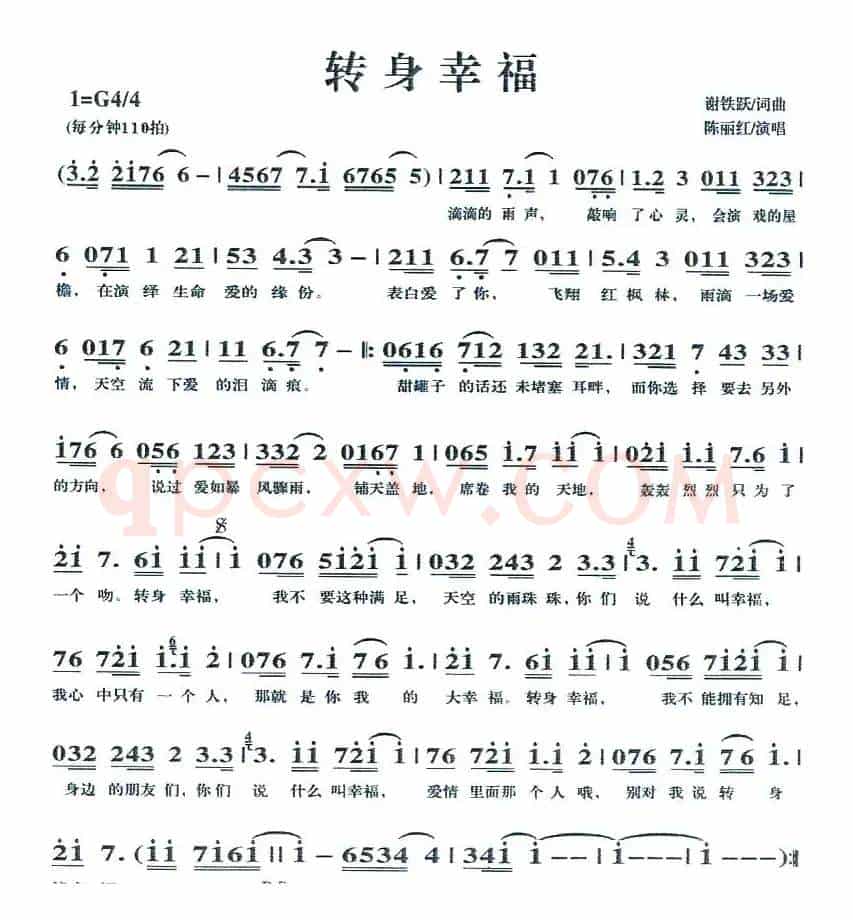 转身幸福
1=G4/4
谢铁跃/词曲
(每分钟110拍)
陈丽红/演唱
(3.2 2176 6-|4567 7.1 6765 5)|211 7.1 1 076|1.2 3 011 323|
滴滴的 雨 声， 敲响 了 心 灵，会演 戏的屋
6 071 1 21|53 4.3 3-|211 6.7 7 011|5.4 3 011 323|
檐，在演 绎 生命 爱的 缘 份。 表白爱 了 你， 飞翔 红 枫 林，雨滴 一场爱
6 017 6 21|11 6.7 7-|:0616 712 132 21.|321 7 43 33|
情，天空 流 下爱 的泪 滴 痕。 甜罐子 的话还 未堵塞 耳畔，而你选 择 要去 另外
176 6 056 123|332 2 0167 1|065 1.7 11 1|021 1.1 7.6 1|
的方向，说过 爱如暴 风骤雨，铺天盖 地，席卷 我 的 天地，轰轰 烈 烈 只 为 了
21 7. 61 11|1 076 5121 1|032 243 2 3.3|3. 11 721 1|
一个 吻。转身 幸福， 我不 要这种满 足，天空 的雨珠 珠，你 们 说 什么 叫幸福，
76 721 1.1 2|076 7.1 76 1.|21 7. 61 11|1 056 7121 1|
我心 中只有 一 个 人，那就 是 你 我 的 大幸 福。转身 幸福， 我不 能拥有知 足，
032 243 2 3.3|3. 11 721 1|76 721 1.1 2|076 7.1 76 1.|
身边 的朋友 们，你 们 说 什么 叫幸福， 爱情 里面那 个 人 哦，别对 我 说 转 身
21 7.(11 7161 1||1-6534 4|341 1--|1--1--):||
qpcxw.COM